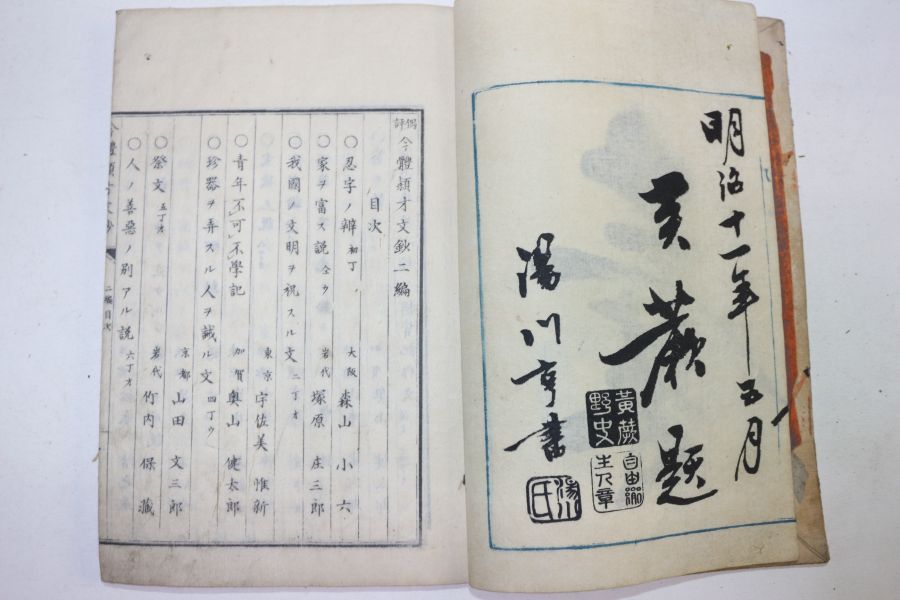 明治十一年五月
黄蕨題
湯川亨書
黄蕨野史
湯川氏
偶評
今體穎才文鈔二編
目次
○忍字ノ辨 初丁 大阪 森山小六
○家ヲ富ス説 仝ウ 岩代 塚原庄三郎
○我國ノ文明ヲ祝スル文 二丁オ 東京 宇佐美惟新
○青年不可不學記 加賀 奥山健太郎
○珍器ヲ弄スル人ヲ誡ル文 四丁ウ 京都 山田文三郎
○祭文 五丁オ 岩代 竹内保藏
○人ノ善惡ノ別アル説 六丁オ
二編目次